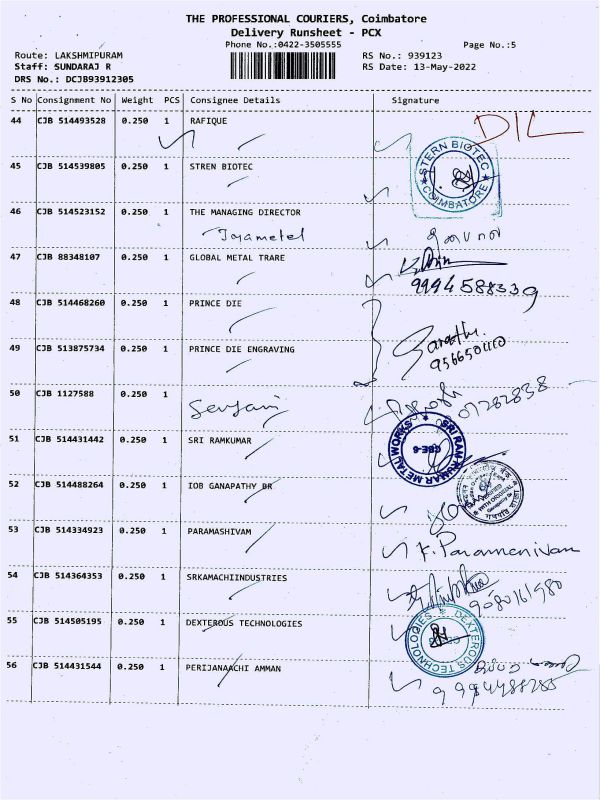 THE PROFESSIONAL COURIERS, Coimbatore
Delivery Runsheet - PCX
Phone No.:0422-3505555
Page No.:5
Route: LAKSHMIPURAM
RS No.: 939123
Staff: SUNDARAJ R
RS Date: 13-May-2022
DRS No.: DCJB93912305
S No Consignment No Weight PCS Consignee Details Signature
44 CJB 514493528 0.250 1 RAFIQUE
DIL
45 CJB 514539805 0.250 1 STREN BIOTEC
STERN BIOTEC
COIMBATORE
46 CJB 514523152 0.250 1 THE MANAGING DIRECTOR
Jayametal
47 CJB 88348107 0.250 1 GLOBAL METAL TRARE
9994588339
48 CJB 514468260 0.250 1 PRINCE DIE
Sarathi
49 CJB 513875734 0.250 1 PRINCE DIE ENGRAVING
50 CJB 1127588 0.250 1
51 CJB 514431442 0.250 1 SRI RAMKUMAR
SRI RAM KUMAR METAL WORKS
CBE-6
52 CJB 514488264 0.250 1 IOB GANAPATHY BR
53 CJB 514334923 0.250 1 PARAMASHIVAM
54 CJB 514364353 0.250 1 SRKAMACHIINDUSTRIES
9080161980
55 CJB 514505195 0.250 1 DEXTEROUS TECHNOLOGIES
DEXTEROUS TECHNOLOGIES
56 CJB 514431544 0.250 1 PERIJANAACHI AMMAN